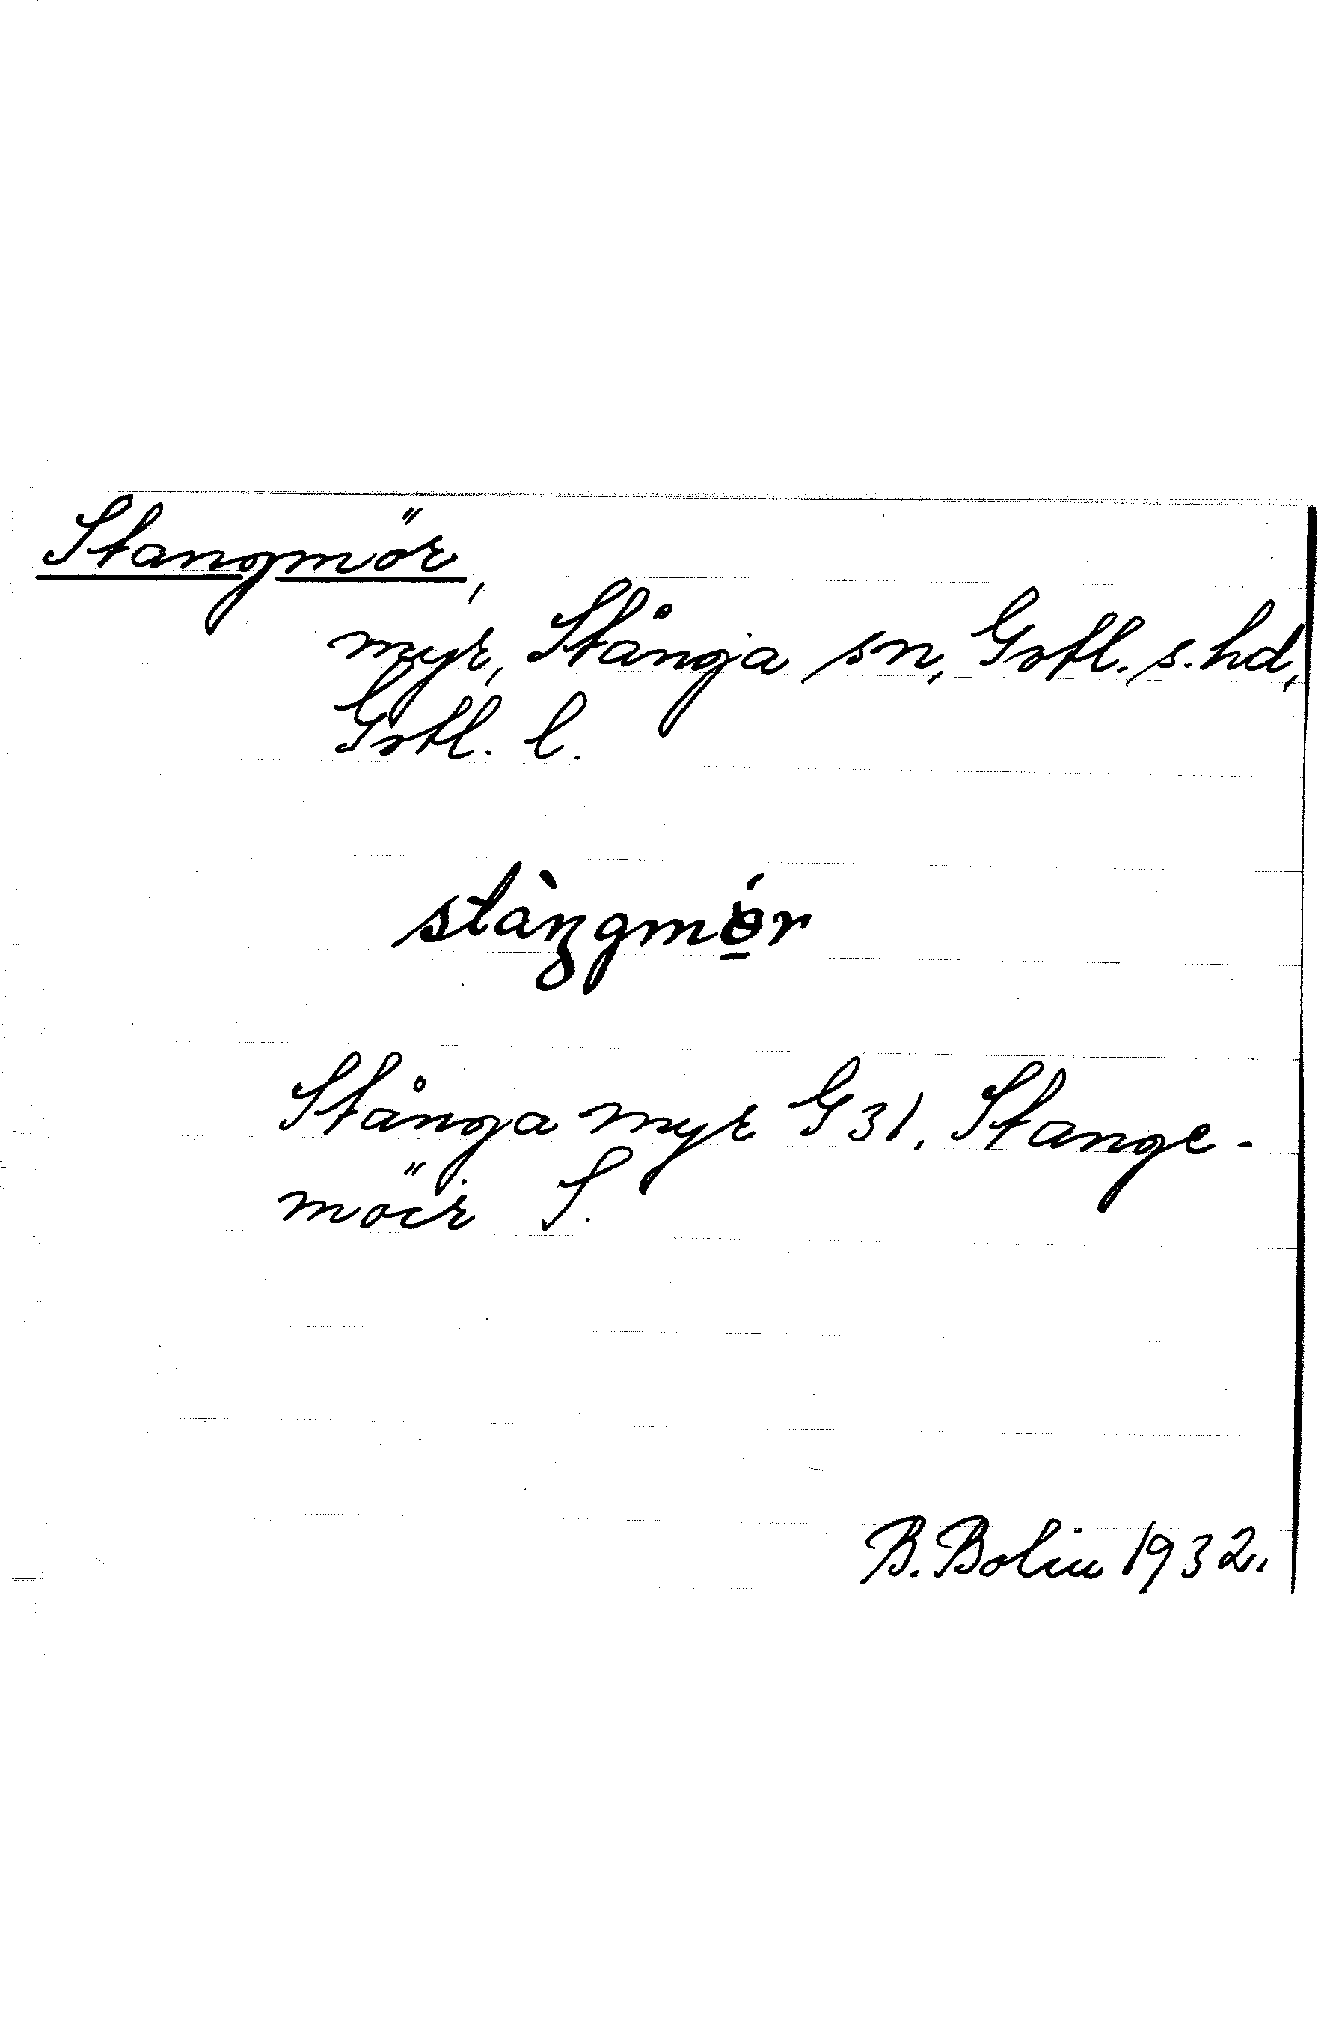 Stangmör,
myr, Stånga sn, Gotl. s. hd,
Gotl. l.
stàŋgmǿ̱r
Stånga myr G 31. Stange-
möir S.
B. Bolin 1932.